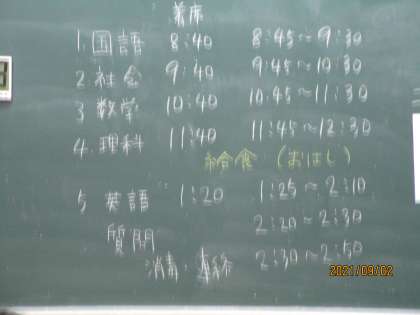 着席
1. 国語 8:40 8:45~9:30
2. 社会 9:40 9:45~10:30
3 数学 10:40 10:45~11:30
4. 理科 11:40 11:45~12:30
給食 (おはし)
5 英語 1:20 1:25~2:10
質問 2:20~2:30
消毒・ 2:30~2:50
2021/09/02